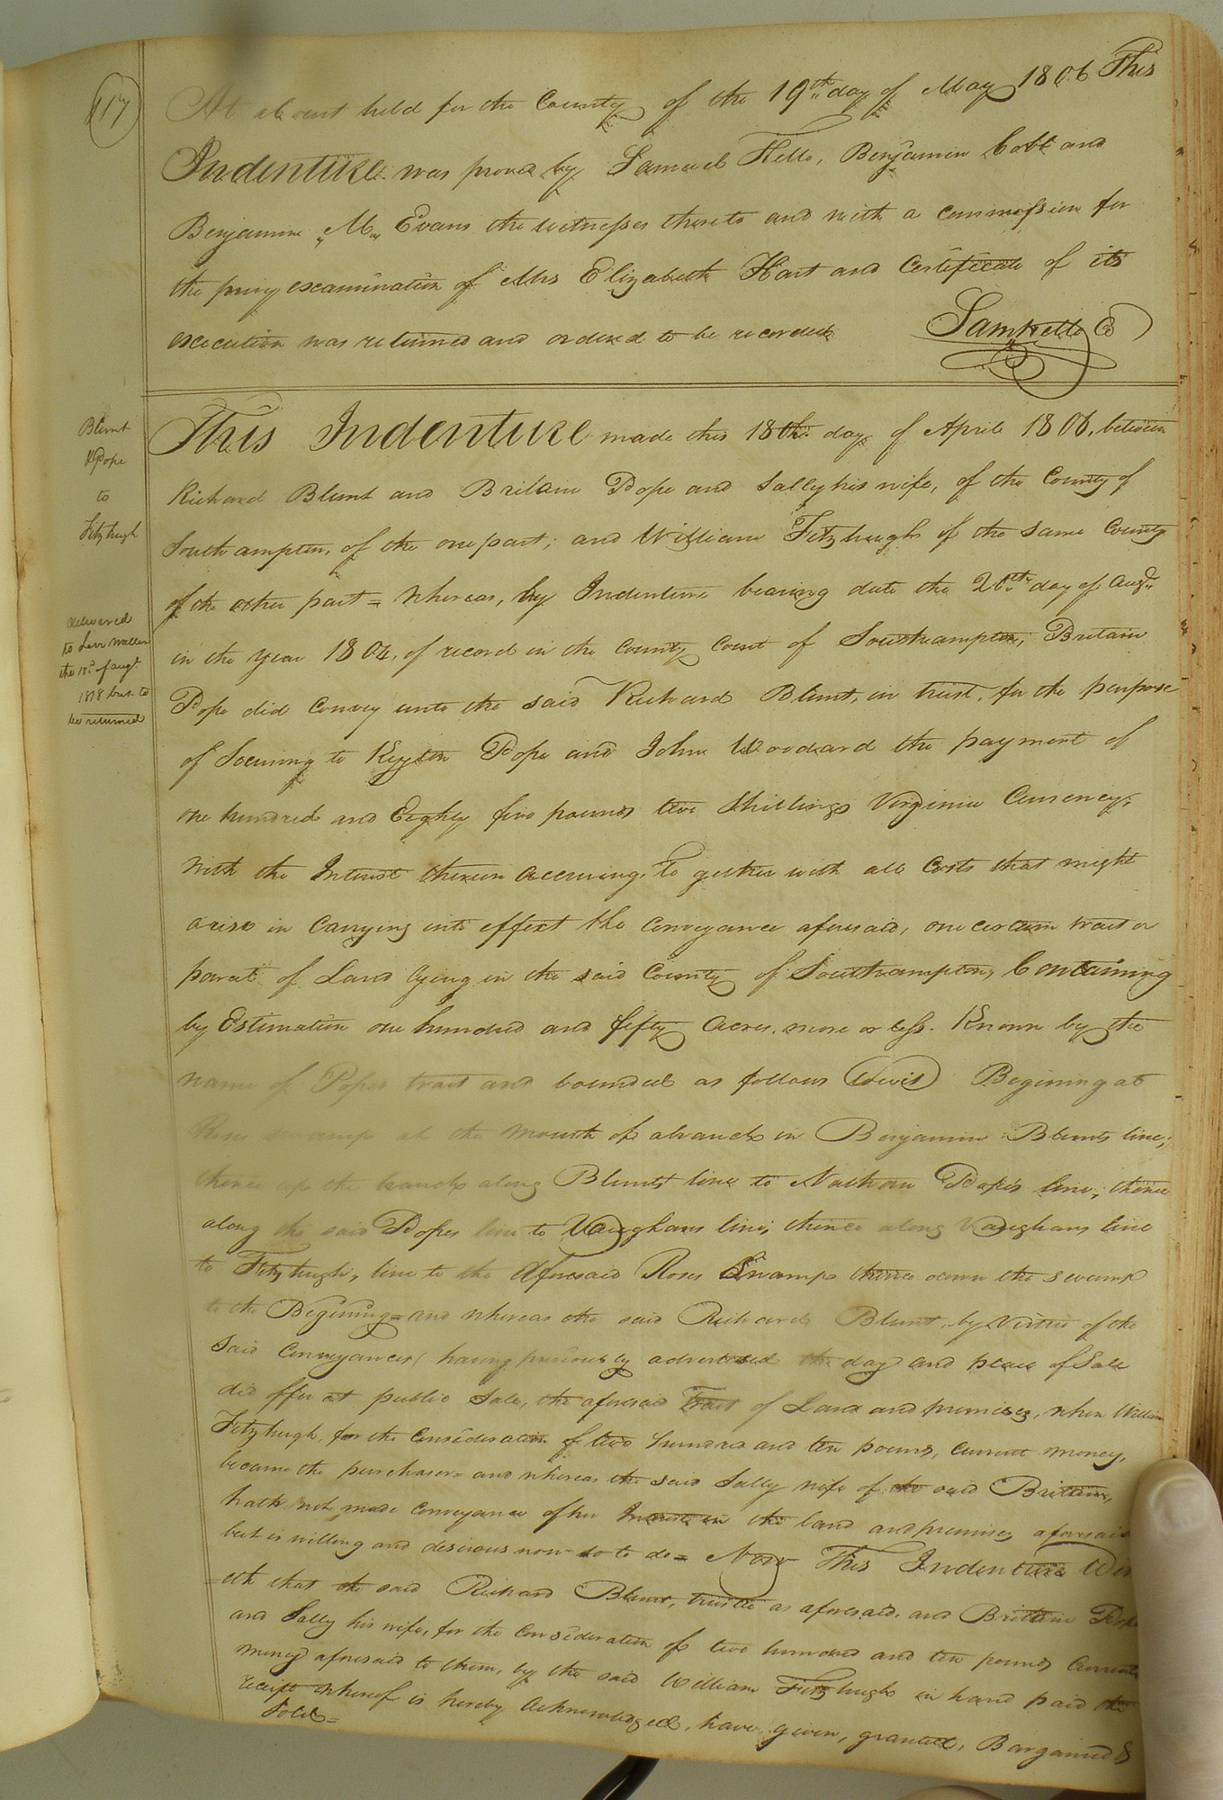 117
At a Court held for the County of the 19th day of May 1806 This
Indenture was proved by Samuel Kello, Benjamin Cobb and
Benjamin M. Evans the witnesses thereto and with a commission for
the privy examination of Mrs Elizabeth Hart and Certificate of its
execution was returned and ordered to be recorded
Sam Kello C
Blunt
& Pope
to
Fitzhugh
delivered
to
the of augt
1818 but to
be returned
This Indenture made this 18th day of April 1806, between
Richard Blunt and Britain Pope and Sally his wife, of the County of
Southampton, of the one part; and William Fitzhugh of the same County
of the other part = Whereas, by Indenture bearing date the 20th day of Augt
in the year 1804, of record in the County Court of Southampton, Britain
Pope did Convey unto the said Richard Blunt, in trust, for the purpose
of Securing to Pope and John Woodard the payment of
one hundred and Eighty five pounds two Shillings Virginia Currency,
with the Interest therein accruing, To gether with all Costs that might
arise in Carrying into effect the Conveyance aforesaid, one certain tract or
parcel of Land lying in the said County of Southampton, Containing
by Estimation one hundred and fifty acres, more or less. Known by the
name of Popes tract and bounded as follows (towit) Begining at
Roses swamp at the mouth of a branch in Benjamin Blunts line;
thence up the branch along Blunts line to Nathan Popes line; thence
along the said Popes line to Vaughans line; thence along Vaughans line
to Fitzhugh's line to the Aforesaid Roses Swamp thence down the swamp
to the Begining = and whereas the said Richard Blunt, by Virtue of the
said Conveyance (having previously advertised the day and place of Sale
did offer at public Sale, the aforesaid Tract of Land and premises, when William
Fitzhugh, for the Consideration of two hundred and ten pounds, current money,
became the purchaser = and whereas the said Sally wife of the said Brittain,
hath not made conveyance of her Interest in the land and premises aforesaid
but is willing and desirous now so to do = Now This Indenture Wit
=eth that the said Richard Blunt, trustee as aforesaid, and Brittain Pope
and Sally his wife, for the Consideration of two hundred and ten pounds Current
money aforesaid to them, by the said William Fitzhugh in hand paid the
receipt whereof is hereby Acknowledged, have given, granted, Bargained &
Sold =